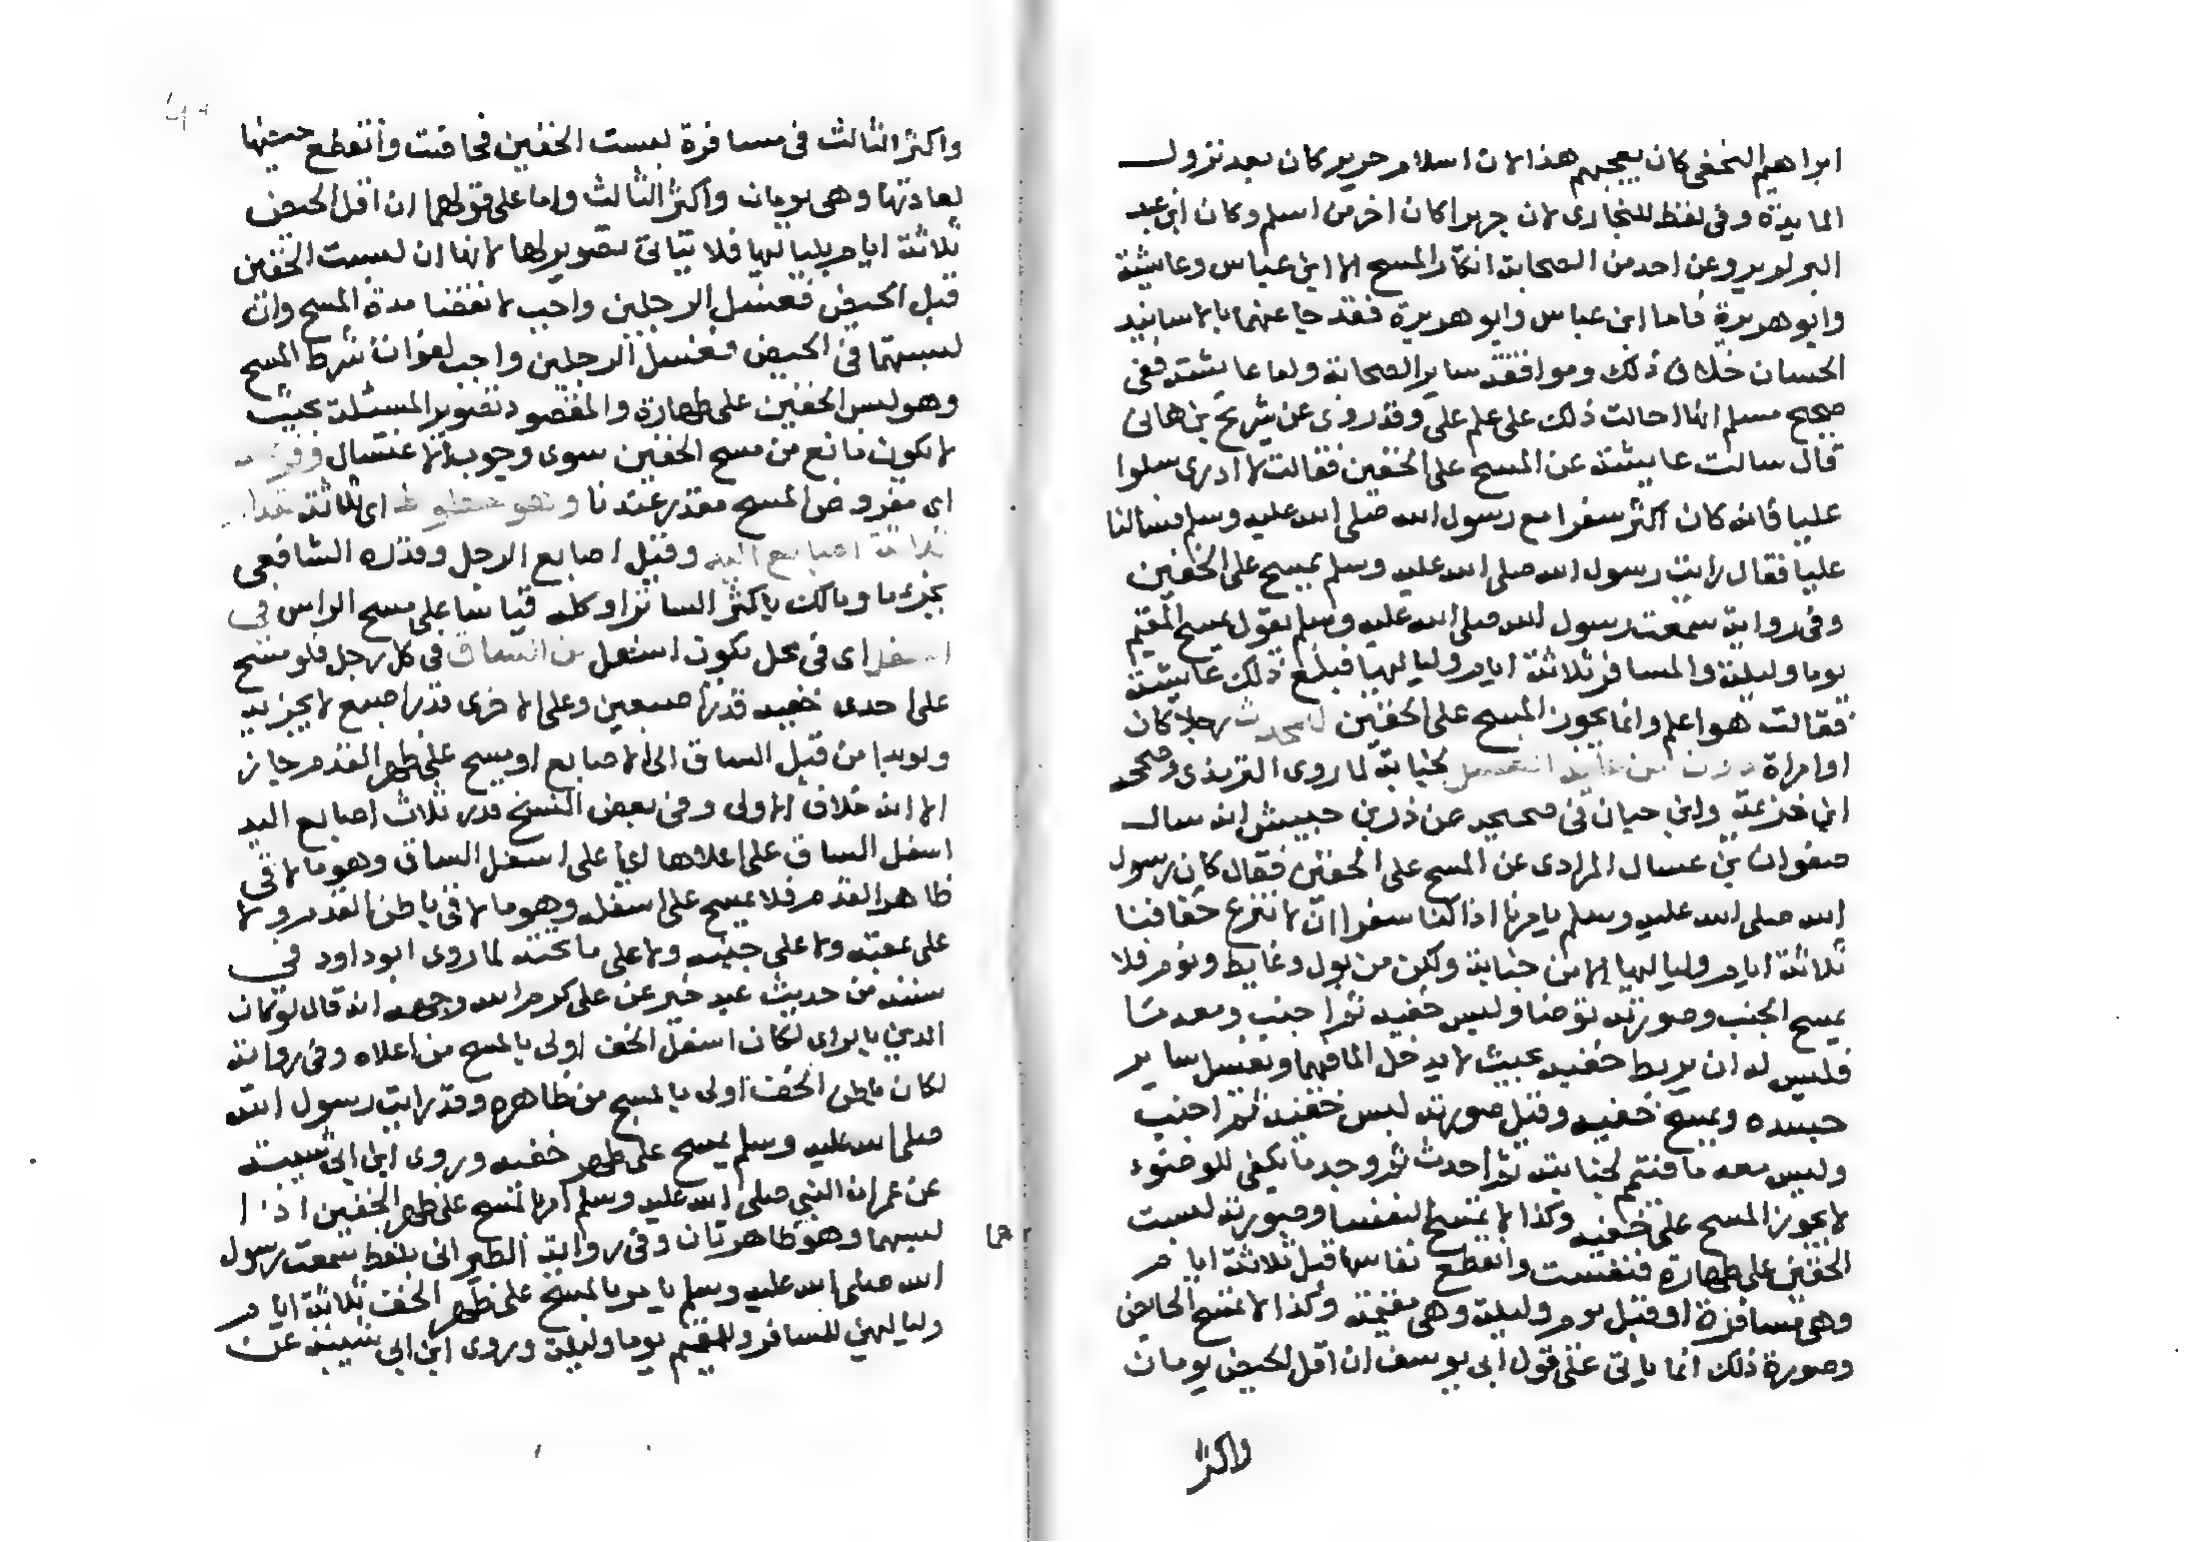 ابراهيم النخعى كان يعجبهم هذا لان اسلام جرير كان بعد نزول
المايدة وفى لفظ للبخارى لان جريرا كان اخر من اسلم وكان ابن عبد
البر لم يرو عن احد من الصحابة انكار المسح الا ابن عباس وعايشة
وابو هريرة فاما ابن عباس وابو هريرة فقد جا عنهما بالاسانيد
الحسان خلاف ذلك وموافقة ساير الصحابة واما عايشة ففى
صحيح مسلم انها احالت ذلك على علم على وقد روى عن شريح بن هانى
قال سالت عايشة عن المسح على الخفين فقالت لا ادرى سلوا
عليا فانه كان اكثر سفرا مع رسول الله صلى الله عليه وسلم فسالنا
عليا فقال رايت رسول الله صلى الله عليه وسلم يمسح على الخفين
وفى رواية سمعت رسول الله صلى الله عليه وسلم يقول يمسح المقيم
يوما وليلة والمسافر ثلاثة ايام ولياليها فبلغ ذلك عايشة
فقالت هو اعلم وانما يجوز المسح على الخفين لمحدث رجلا كان
او امراة دون من عليه الغسل لجنابة لما روى الترمذى وصححه
ابن خزيمة وابن حبان فى صحيحه عن ذر بن حبيش انه سال
صفوان بن عسال المرادى عن المسح على الخفين فقال كان رسول
الله صلى الله عليه وسلم يامرنا اذا كنا سفرا ان لا ننزع خفافنا
ثلاثة ايام ولياليها الا من جنابة ولكن من بول وغايط ونوم فلا
يمسح الجنب وصورته توضا ولبس خفيه ثم اجنب ومعه ما
فليس له ان يربط خفيه بحيث لا يدخل الما فيهما ويغسل ساير
جسده ويمسح خفيه وقيل صورته لبس خفيه ثم اجنب
وليس معه ما فتيمم لجنابته ثم احدث ثم وجد ما يكفى للوضوء
لا يجوز المسح على خفيه وكذا لا تمسح النفسا وصورته لبست
الخفين على طهارة فنفست وانقطع نفاسها قبل ثلاثة ايام
وهى مسافرة او قبل يوم وليلة وهى مقيمة وكذا لا تمسح الحايض
وصورة ذلك انما ياتى على قول ابى يوسف ان اقل الحيض يومان
واكثر
واكثر الثالث فى مسافرة لبست الخفين فحاضت وانقطع حيضها
لعادتها وهى يومان واكثر الثالث واما على قولهما ان اقل الحيض
ثلاثة ايام بلياليها فلا يتاتى تصويرها لانها ان لبست الخفين
قبل الحيض فغسل الرجلين واجب لانقضا مدة المسح وان
لبستهما فى الحيض فغسل الرجلين واجب لفوات شرط المسح
وهو لبس الخفين على طهارة والمقصود تصوير المسئلة بحيث
لا يكون مانع من مسح الخفين سوى وجوب الاغتسال
اى مفروض المسح مقدر عندنا وهو خطوط اى ثلاثة
ثلاثة اصابع اليد وقيل اصابع الرجل وقدره الشافعى
بجزء ما ومالك باكثر الساتر او كله قياسا على مسح الراس فى
اسفل اى فى محل يكون اسفل من الساق فى كل رجل فلو مسح
على احدى خفيه قدر اصبعين وعلى الاخرى قدر اصبع لا يجزيه
ولو بدا من قبل الساق الى الاصابع او مسح على ظهر القدم جايز
الا انه خلاف الاولى وفى بعض النسخ قدر ثلاث اصابع اليد
اسفل الساق على اعلاها اى على اسفل الساق وهو ما لاقى
ظاهر القدم فلا يمسح على اسفله وهو ما لاقى باطن القدم ولا
على عقبه ولا على جنبه ولا على ما تحته لما روى ابو داود فى
سننه من حديث عبد خير عن على كرم الله وجهه انه قال لو كان
الدين بالراى لكان اسفل الخف اولى بالمسح من اعلاه وفى رواية
لكان باطن الخف اولى بالمسح من ظاهره وقد رايت رسول الله
صلى الله عليه وسلم يمسح على ظهر خفيه وروى ابن ابى شيبة
عن عمر ان النبى صلى الله عليه وسلم امر بالمسح على ظهر الخفين اذا
لبسهما وهو طاهرتان وفى رواية الطبرانى بلفظ سمعت رسول
الله صلى الله عليه وسلم يامر بالمسح على ظهر الخف ثلاثة ايام
ولياليهن للمسافر وللمقيم يوما وليلة وروى ابن ابى شيبة عن